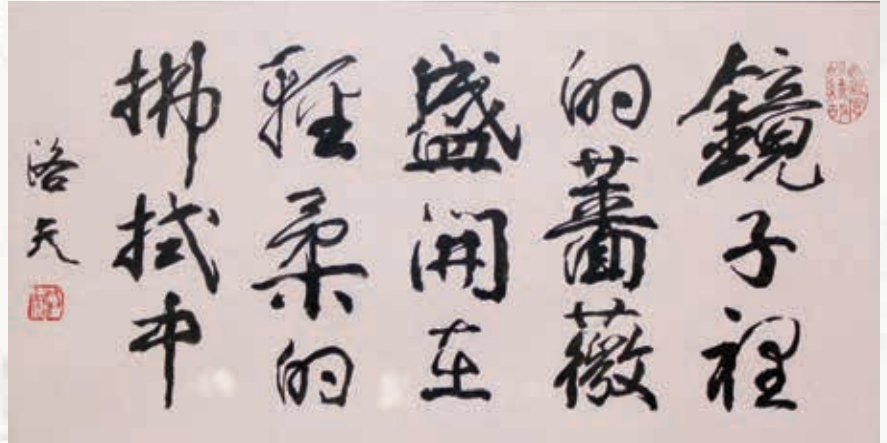 鏡子裡
的薔薇
盛開在
輕柔的
拂拭中
洛夫